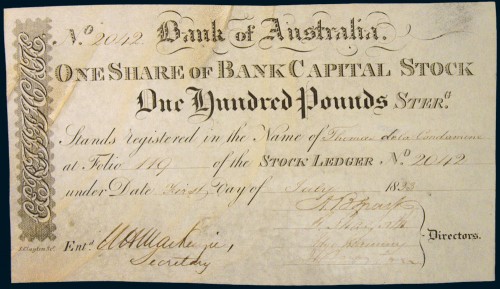 CERTIFICATE
No. 2042. Bank of Australia.
ONE SHARE OF BANK CAPITAL STOCK
One Hundred Pounds STERg.
Stands registered in the Name of Thomas de la Condamine
at Folio 119 of the STOCK LEDGER, No. 2042
under Date First, Day of July 1833
Entd. Mackenzie,
Secretary
Directors.